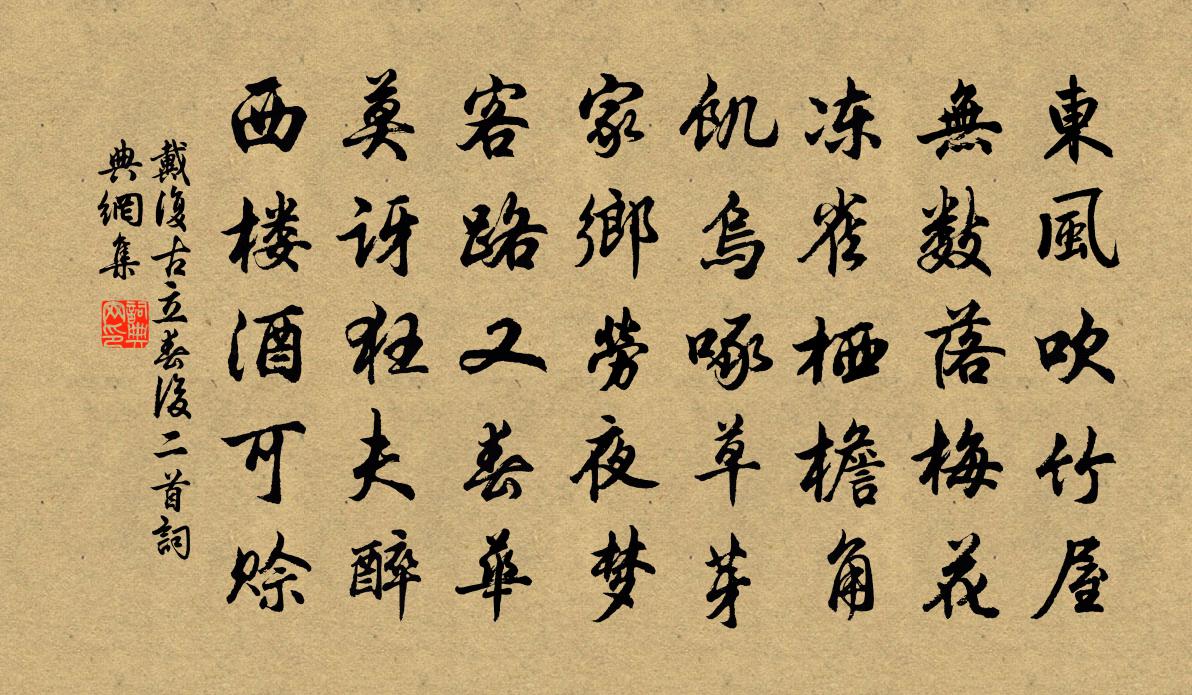 東風吹竹屋
無數落梅花
冻雀栖檐角
飢烏啄草芽
家鄉勞夜梦
客路又春華
莫訝狂夫醉
西楼酒可赊
戴復古立春後二首詞
典網集
詞典
网印